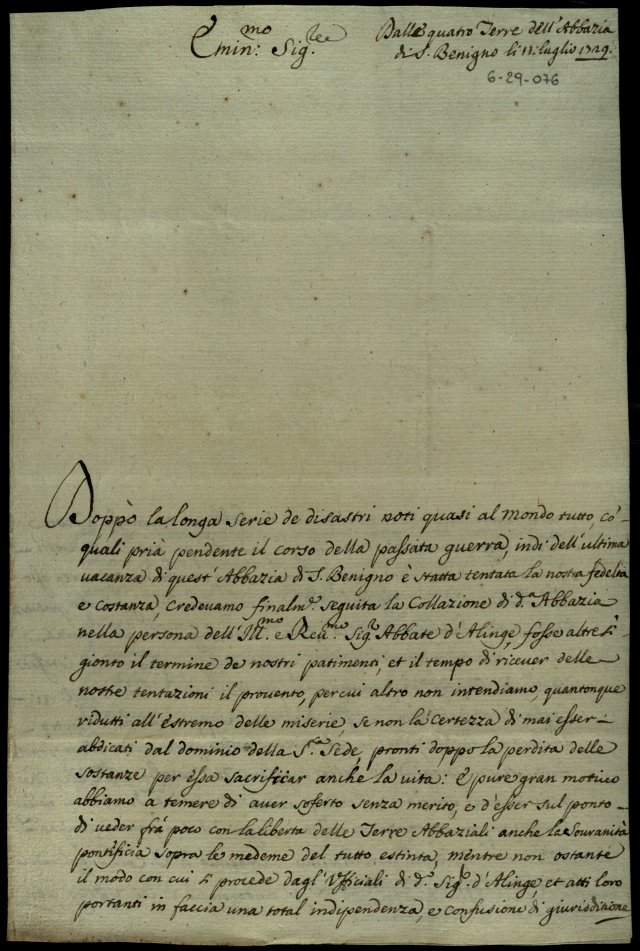 Emin.mo Sig.re
Dalle quatro Terre dell'Abbazia
di S. Benigno li 11: luglio 1729.
6-29-076
Doppò la longa serie de disastri noti quasi al mondo tutto, co'-
quali prià pendente il corso della passata guerra, indi dell'ultima
vacanza di quest'Abbazia di S. Benigno è statta tentata la nostra fedeltà
e costanza, credevamo finalm.e seguita la Collazione di d.a Abbazia
nella persona dell'Ill.mo e Reu.mo Sig.r Abbate d'Alinge, fosse altresì
gionto il termine de nostri patimenti, et il tempo di ricever delle
nostre tentazioni il provento, per cui altro non intendiamo, quantonque
ridutti all'estremo delle miserie, se non la certezza di mai esser-
abdicati dal dominio della S.ta Sede, pronti doppo la perdita delle
sostanze per essa sacrificar anche la vita: E pure gran motivo
abbiamo a temere di aver soferto senza merito, e d'esser sul ponto-
di veder frà poco con la libertà delle Terre Abbaziali anche la Souranità
pontificia sopra le medeme del tutto estinta, mentre non ostante
il modo con cui si procede dagl'Ufficiali di d.o Sig.r d'Alinge, et atti loro
portanti in faccia una total indipendenza, e confusione di giurisditione